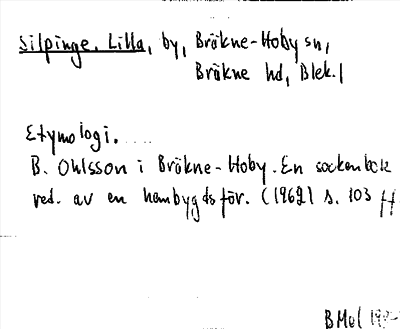 Silpinge, Lilla, by, Bräkne-Hoby sn,
Bräkne hd, Blek.
Etymologi.
B. Ohlsson i Bräkne-Hoby. En sockenbok
red. av en hembygdsför. (1962) s. 103 ff
BMol